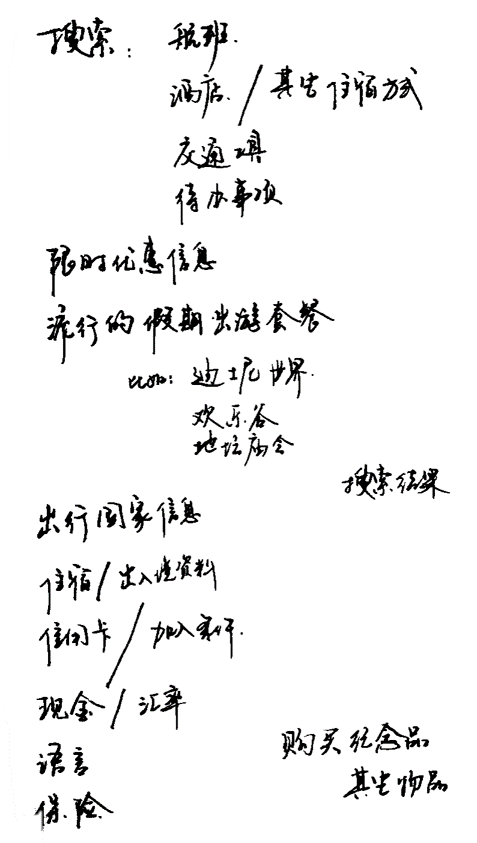 搜索：航班.
酒店/其它住宿方式
交通工具
待办事项
限时优惠信息
流行的假期出游套餐
比如：迪士尼世界.
欢乐谷
地坛庙会
搜索结果
出行国家信息
住宿/出入境资料
信用卡/加入
现金/汇率
语言
购买纪念品
其它物品
保险